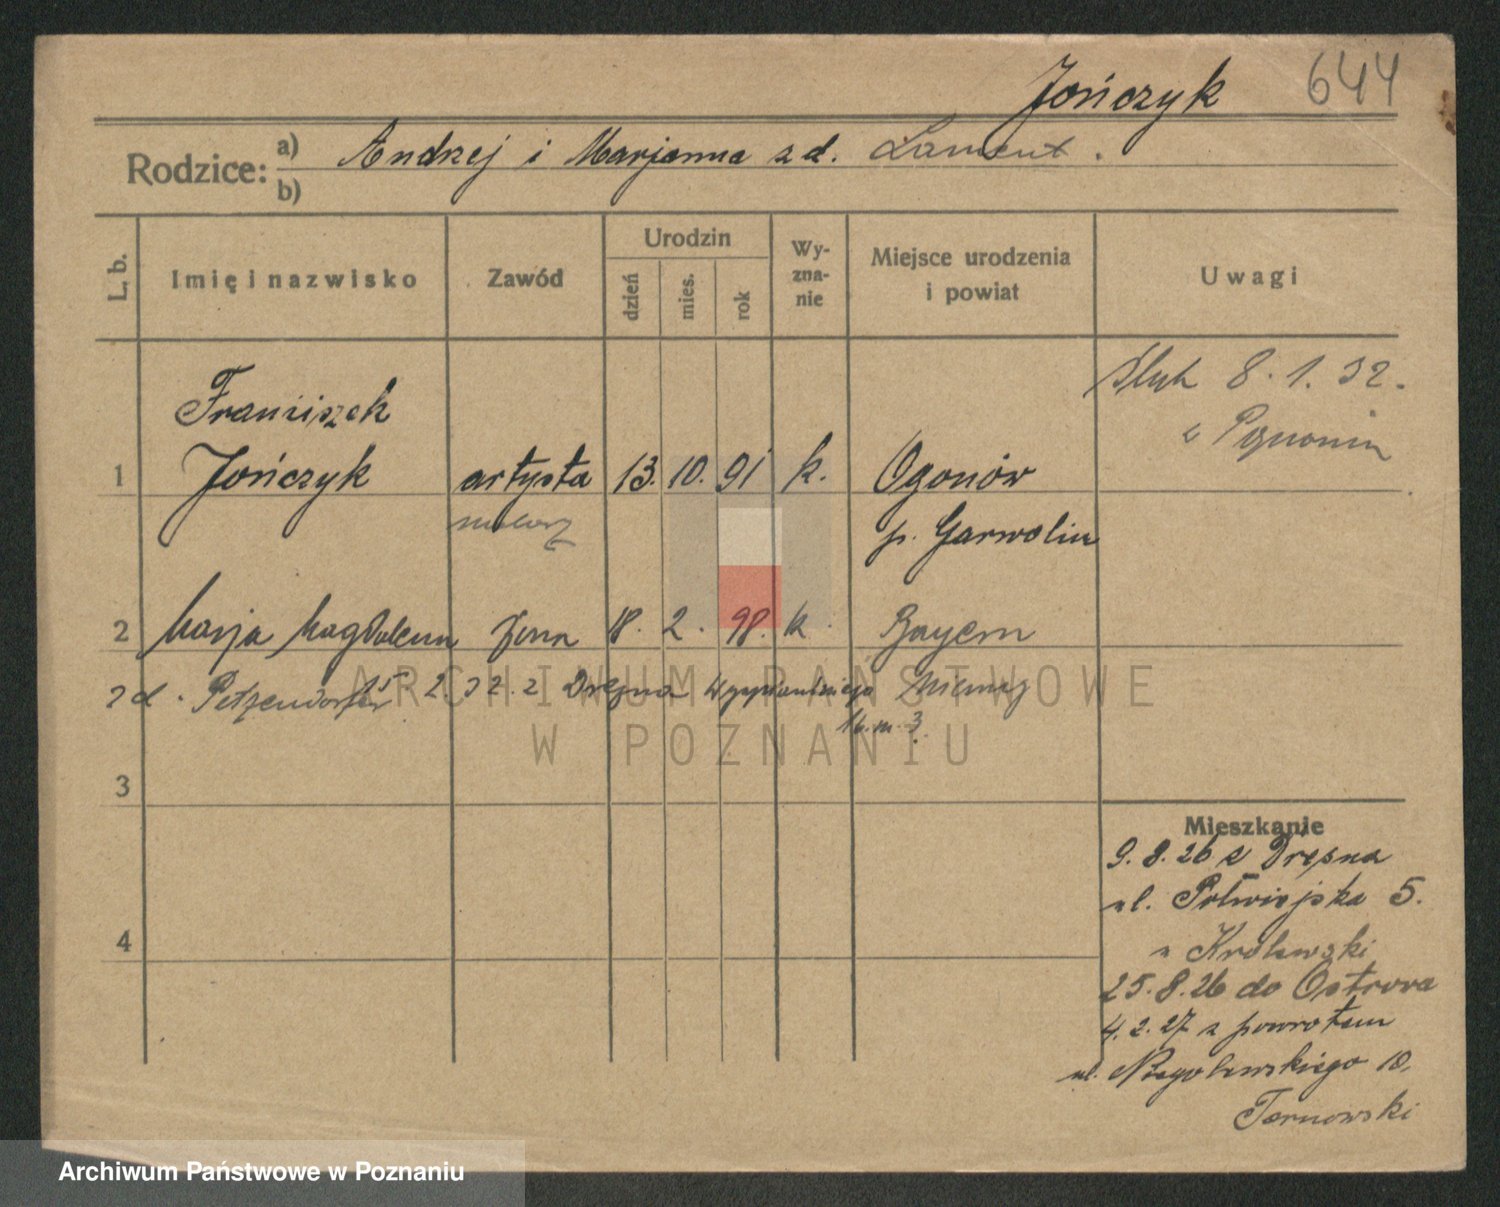 Jończyk 644
Rodzice: a) Andrzej i Marjanna z d. Lament.
b)
L. b. Imię i nazwisko Zawód Urodzin dzień mies. rok Wy-zna-nie Miejsce urodzenia i powiat Uwagi
Ślub 8.1.32.
w Poznaniu
Franciszek
1 Jończyk artysta 13. 10. 91 k. Ogonów
malarz p. Garwolin
2 Marja Magdalena żona 18. 2. 98. k. Bayern
z d. Petzendorfer 5 2.32. z Drezna Niemcy
16. m. 3.
3
4
Mieszkanie
9.8.26 z Drezna
ul. Półwiejska 5.
u Królewski
25.8.26 do Ostrowa
4.2.27 z powrotem
ul. 10.
Tarnowski
ARCHIWUM PAŃSTWOWE
W POZNANIU
Archiwum Państwowe w Poznaniu